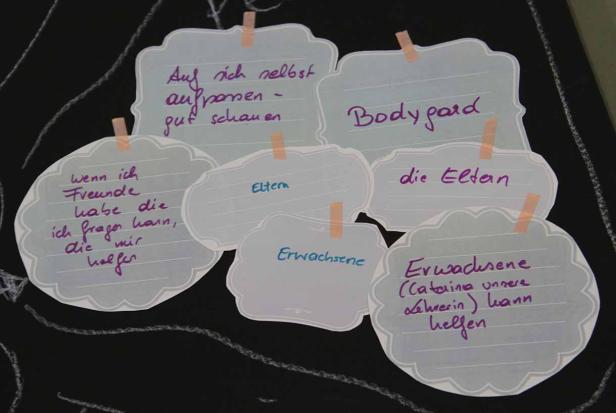 Auf sich selbst
aufpassen -
gut schauen
Bodygard
wenn ich
Freunde
habe die
ich fragen kann,
die mir
helfen
Eltern
die Eltern
Erwachsene
Erwachsene
(Catarina unsere
Lehrerin) kann
helfen